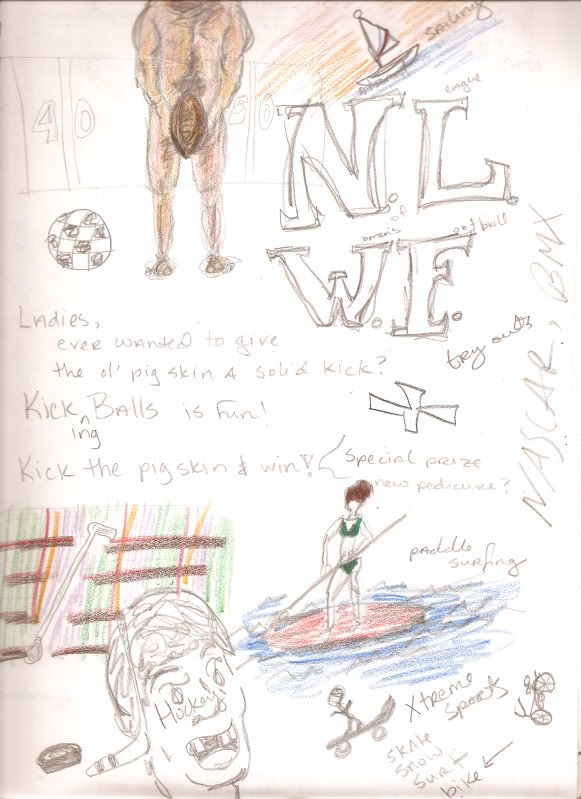 sailing
40
50
N.L.
eague
of
W.F.
omen's
ootball
try outs
NASCAR, BMX
Ladies,
ever wanted to give
the ol' pig skin a solid kick?
Kick Balls is fun!
^
ing
Kick the pigskin & win!
Special prize
new pedicure?
paddle
surfing
Hockey!
Xtreme
Sports
skate
snow
surf
bike